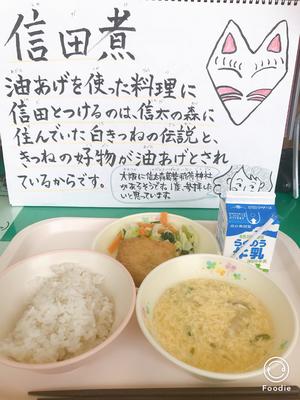 信田煮
油あげを使った料理に
信田とつけるのは、信太の森に
住んでいた白きつねの伝説と、
きつねの好物が油あげとされ
ているからです。
大阪に信太森葛葉稲荷神社
があるそうです。1度、参拝したい
と思っています。
牛乳
Foodie